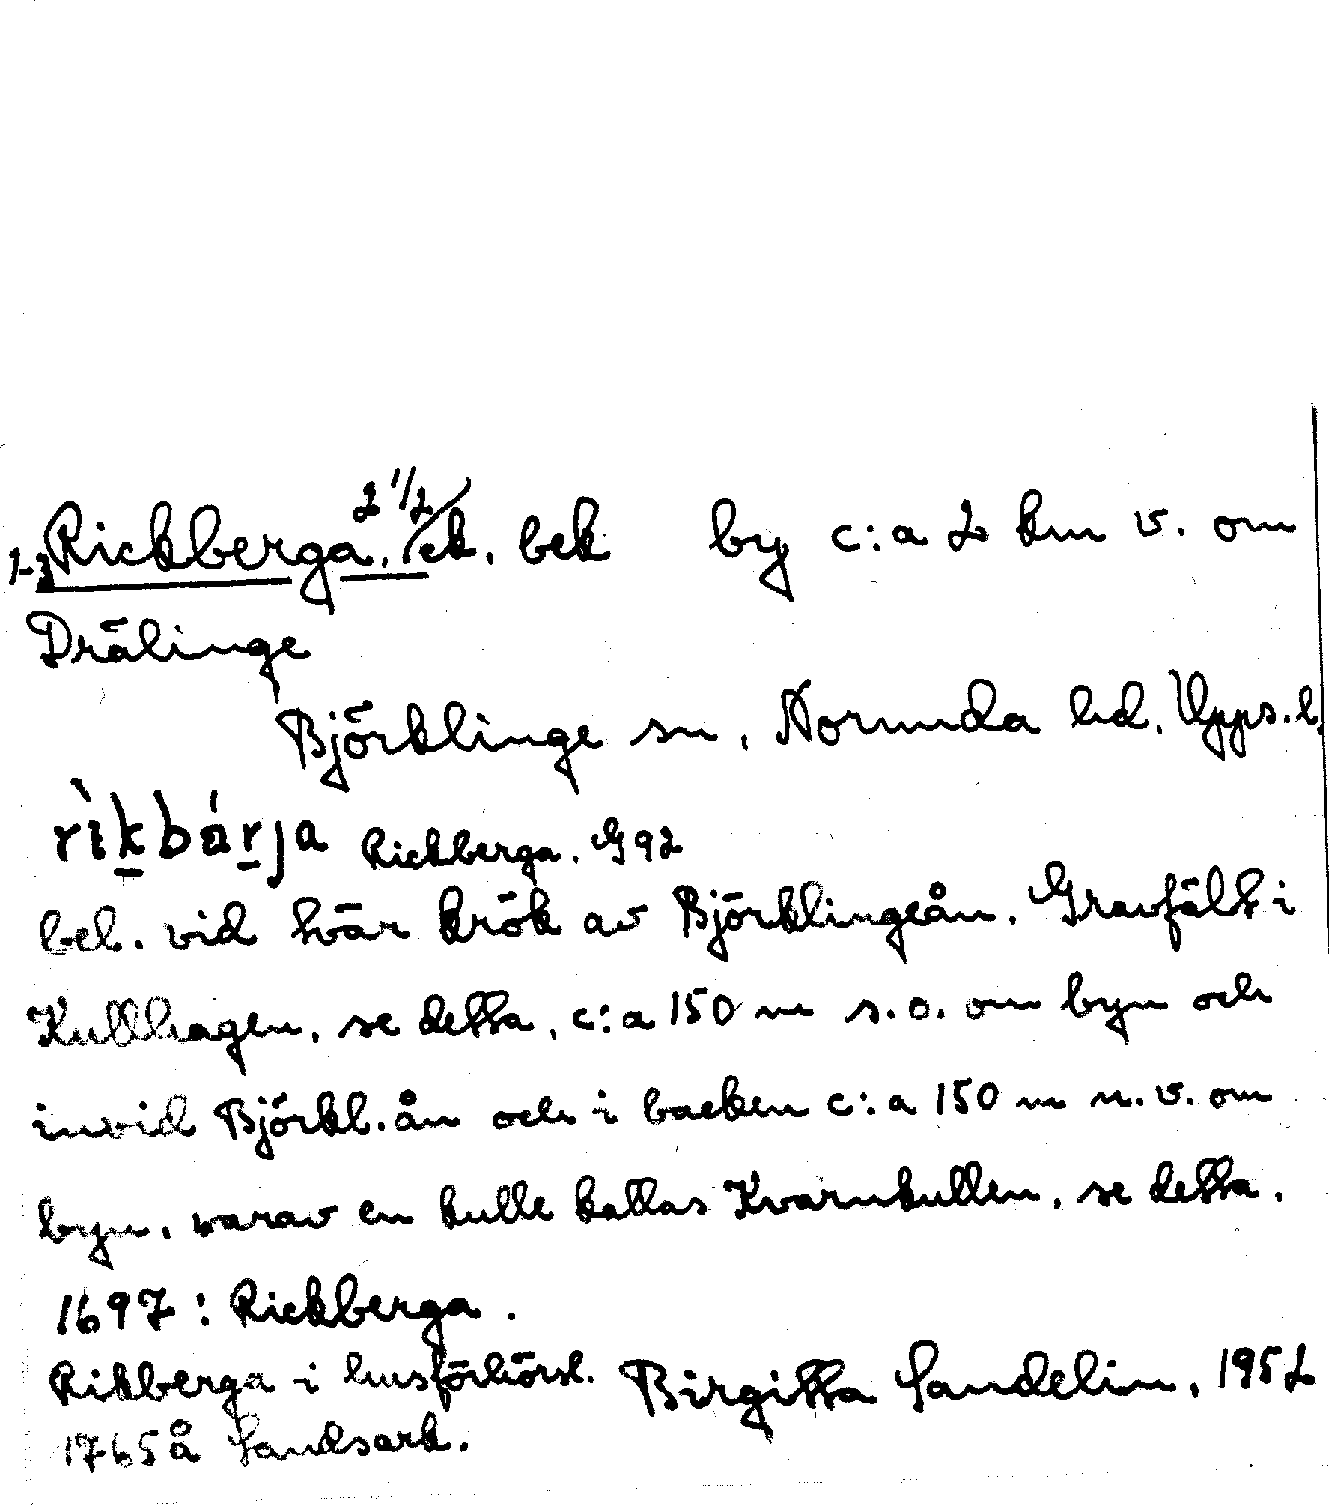 1-3 Rickberga, 2 1/2 ck. bek by c:a 2 km v. om
Drälinge
Björklinge sn, Norunda hd. Upps. l.
rìkbárja Rickberga. G 92
bel. vid tvär krök av Björklingeån. Gravfält i
Kullhagen, se detta, c:a 150 m s.o. om byn och
invid Björkl.ån och i backen c:a 150 m n.v. om
byn, varav en kulle kallas Kvarnkullen, se detta.
1697: Rickberga.
Rikberga i husförhörsl. Birgitta Sandelin, 1952
1765 å landsark.